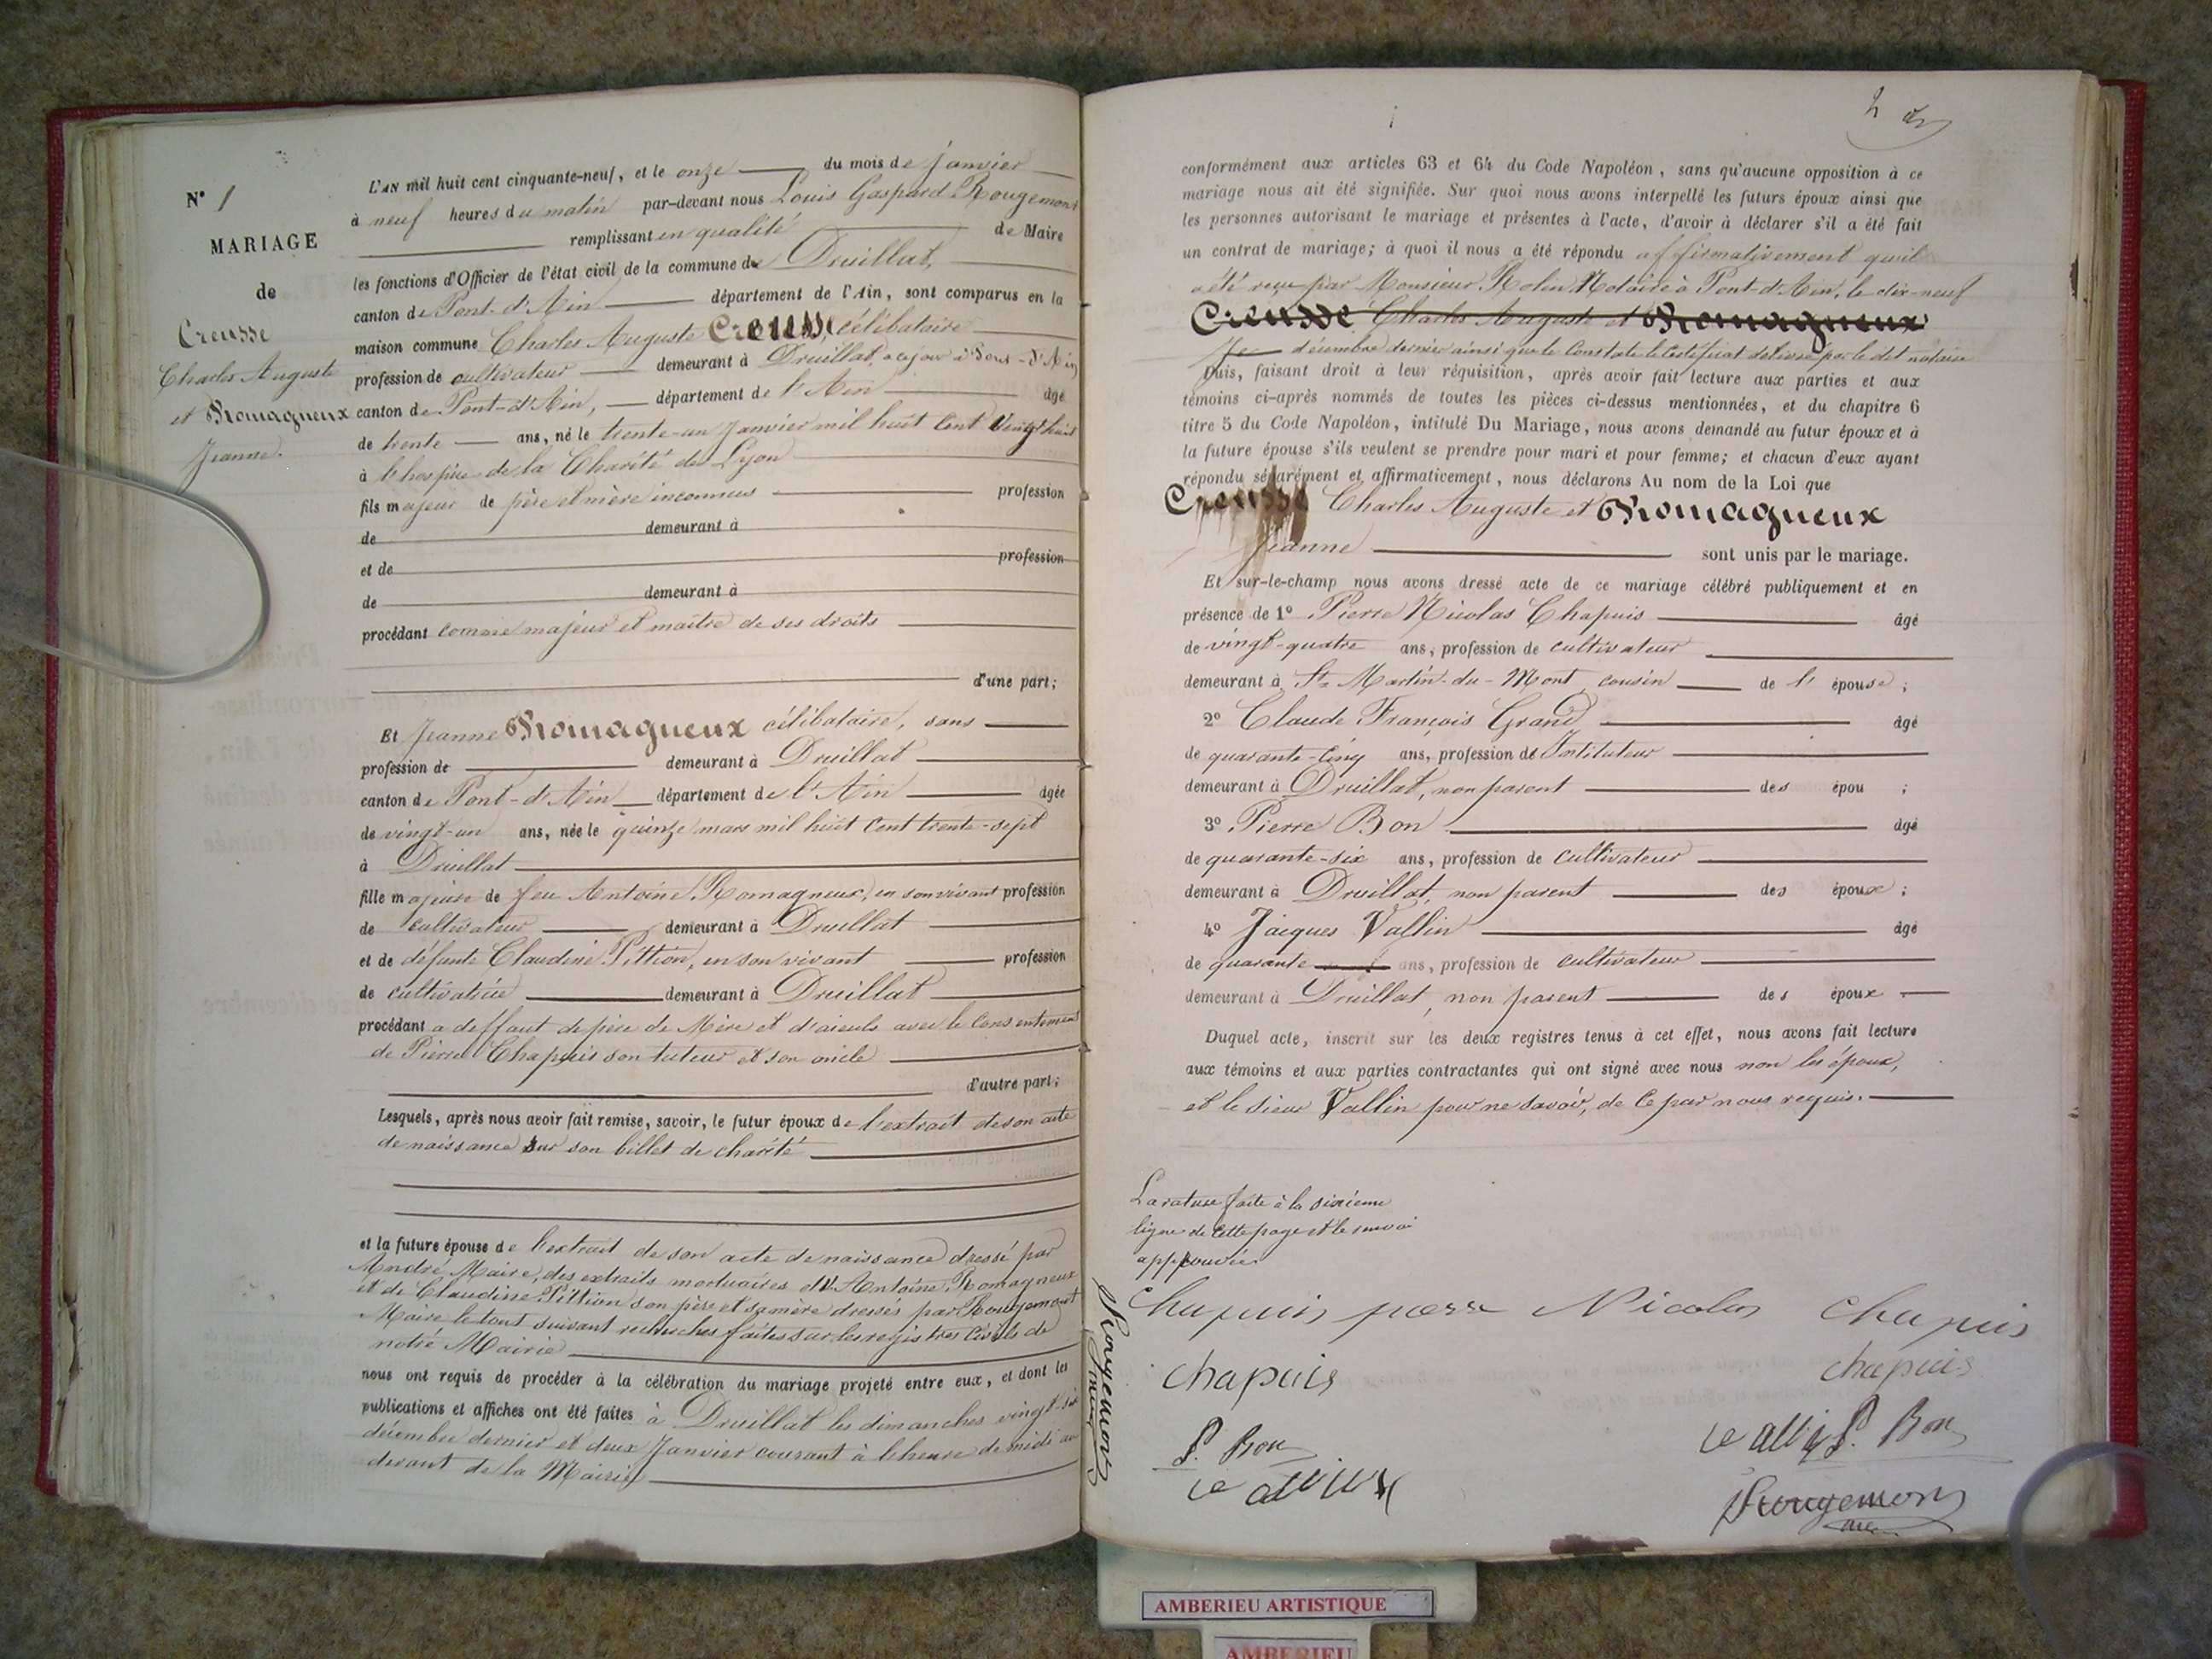 N° 1
MARIAGE
de
Creusse
Charles Auguste
et Romagneux
Jeanne.
L'AN mil huit cent cinquante-neuf, et le onze du mois de janvier
à neuf heures du matin par-devant nous Louis Gaspard Rougemont
remplissant en qualité de Maire
les fonctions d'Officier de l'état civil de la commune de Druillat,
canton de Pont-d'Ain département de l'Ain, sont comparus en la
maison commune Charles Auguste Creusse, célibataire
profession de cultivateur demeurant à Druillat, à Pont-d'Ain
canton de Pont-d'Ain, département de l'Ain âgé
de trente ans, né le trente-un Janvier mil huit Cent Vingt huit
à l'hospice de la Charité de Lyon
fils majeur de père et mère inconnus profession
de demeurant à
et de profession
de demeurant à
procédant comme majeur et maître de ses droits
d'une part;
Et Jeanne Romagneux célibataire, sans
profession de demeurant à Druillat
canton de Pont-d'Ain département de l'Ain âgée
de vingt-un ans, née le quinze mars mil huit Cent trente-sept
à Druillat
fille majeure de feu Antoine Romagneux, en son vivant profession
de cultivateur demeurant à Druillat
et de défunte Claudine Pittion, en son vivant profession
de cultivatrice demeurant à Druillat
procédant a deffaut de père de Mère et d'aïeuls avec le Consentement
de Pierre Chapuis son tuteur et son oncle
d'autre part;
Lesquels, après nous avoir fait remise, savoir, le futur époux de l'extrait de son acte
de naissance sur son billet de charité
et la future épouse de l'extrait de son acte de naissance dressé par
André Maire, des extraits mortuaires d'Antoine Romagneux
et de Claudine Pittion son père et sa mère dressés par Rougemont
Maire le tout suivant recherches faites sur les registres Civils de
notre Mairie
nous ont requis de procéder à la célébration du mariage projeté entre eux, et dont les
publications et affiches ont été faites à Druillat les dimanches vingt-six
décembre dernier et deux Janvier courant à l'heure de midi au
devant de la Mairie
Rougemont
maire
2
conformément aux articles 63 et 64 du Code Napoléon, sans qu'aucune opposition à ce
mariage nous ait été signifiée. Sur quoi nous avons interpellé les futurs époux ainsi que
les personnes autorisant le mariage et présentes à l'acte, d'avoir à déclarer s'il a été fait
un contrat de mariage; à quoi il nous a été répondu affirmativement qu'il
a été reçu par Monsieur Rolin Notaire à Pont-d'Ain, le dix-neuf
Creusse Charles Auguste et Romagneux
Je décembre dernier ainsi que le Constate le Certificat délivré par le dit notaire
Puis, faisant droit à leur réquisition, après avoir fait lecture aux parties et aux
témoins ci-après nommés de toutes les pièces ci-dessus mentionnées, et du chapitre 6
titre 5 du Code Napoléon, intitulé Du Mariage, nous avons demandé au futur époux et à
la future épouse s'ils veulent se prendre pour mari et pour femme; et chacun d'eux ayant
répondu séparément et affirmativement, nous déclarons Au nom de la Loi que
Creusse Charles Auguste et Romagneux
Jeanne sont unis par le mariage.
Et sur-le-champ nous avons dressé acte de ce mariage célébré publiquement et en
présence de 1° Pierre Nicolas Chapuis âgé
de vingt-quatre ans, profession de cultivateur
demeurant à St Martin-du-Mont, cousin de l' épouse;
2° Claude François Grand âgé
de quarante-cinq ans, profession de Instituteur
demeurant à Druillat, non parent des épou ;
3° Pierre Bon âgé
de quarante-six ans, profession de cultivateur
demeurant à Druillat, non parent des époux;
4° Jacques Vallin âgé
de quarante ans, profession de cultivateur
demeurant à Druillat, non parent des époux
Duquel acte, inscrit sur les deux registres tenus à cet effet, nous avons fait lecture
aux témoins et aux parties contractantes qui ont signé avec nous non les époux,
et le sieur Vallin pour ne savoir, de Ce par nous requis.
La rature faite à la sixième
ligne de Cette page et le renvoi
approuvés
Chapuis Nicolas Chapuis
Chapuis chapuis
P. Bon P. Bon
Rougemont
AMBERIEU ARTISTIQUE
AMBERIEU